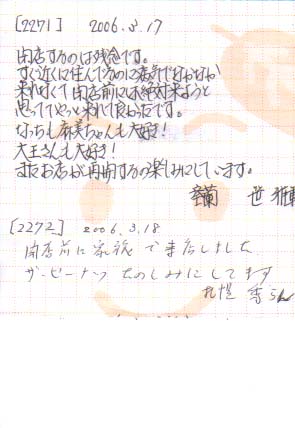 [2271] 2006.3.17
閉店するのは残念です。
すぐ近くに住んでるのに病気でなかなか
来れなくて閉店前には絶対来ようと
思ってやっと来れて良かったです。
なっちも麻美ちゃんも大好き!
大王さんも大好き!
またお店が再開するの楽しみにしています。
室蘭 世
[2272] 2006.3.18
閉店前に家族で来店しました
ザ・ピーナッツ たのしみにしてます
札幌